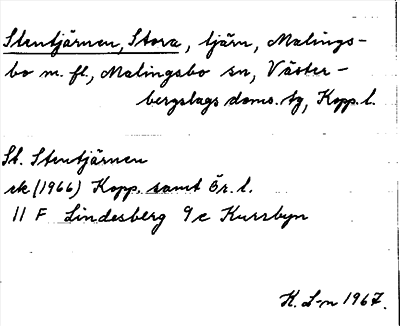 Stentjärnen, Stora, tjärn, Malings-
bo m. fl., Malingsbo sn, Väster-
bergslags doms. tg, Kopp. l.
St. Stentjärnen
ek (1966) Kopp. samt Ör. l.
11 F Lindesberg 9 c Kurrbyn
K. L-n 1967.